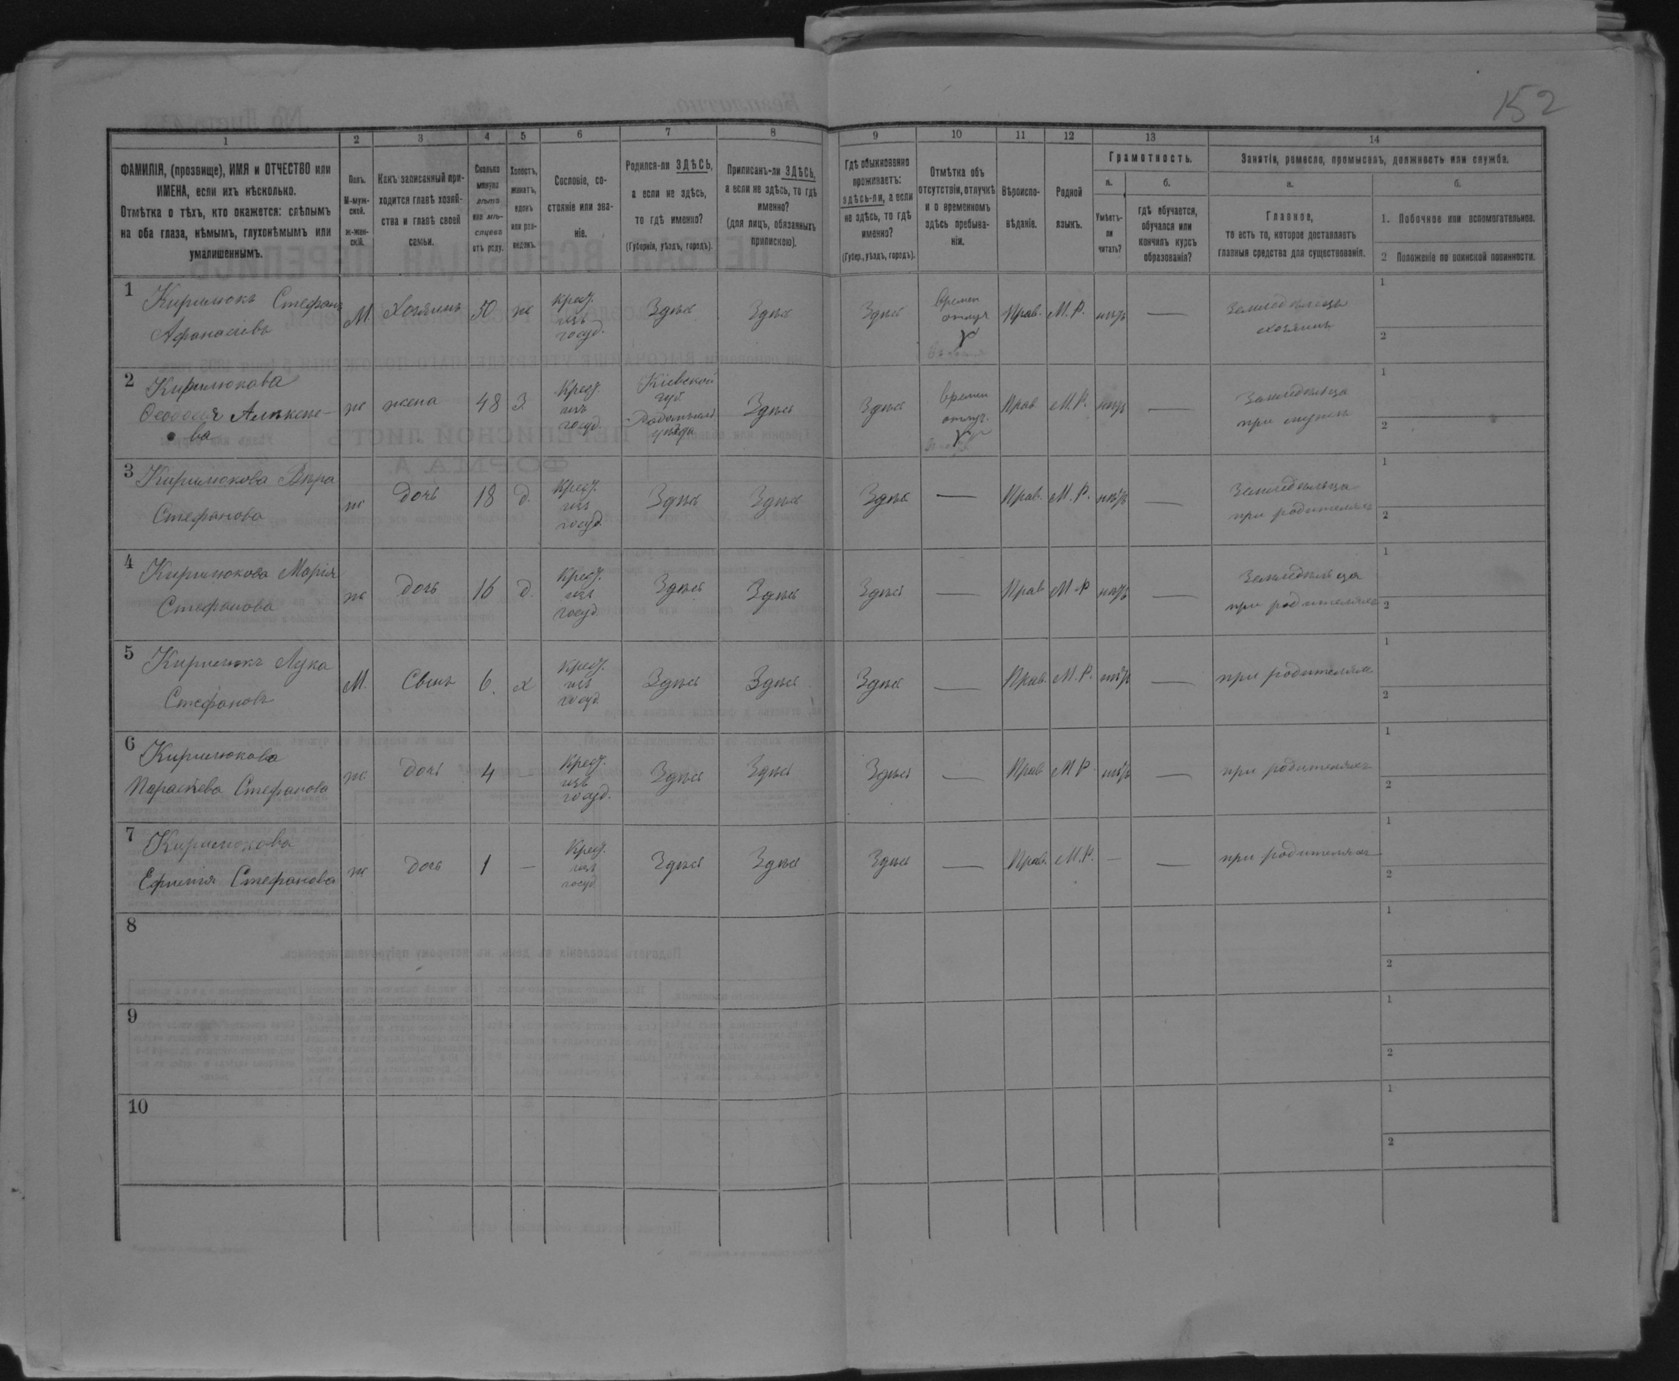 152
1 2 3 4 5 6 7 8 9 10 11 12 13 14
ФАМИЛІЯ, (прозвище), ИМЯ и ОТЧЕСТВО или
ИМЕНА, если ихъ нѣсколько.
Отмѣтка о тѣхъ, кто окажется: слѣпымъ
на оба глаза, нѣмымъ, глухонѣмымъ или
умалишеннымъ.
Полъ.
М-муж-
ской.
ж-жен-
скій.
Какъ записанный при-
ходится главѣ хозяй-
ства и главѣ своей
семьи.
Сколько
минуло
лѣтъ
или мѣ-
сяцевъ
отъ роду.
Холостъ,
женатъ,
вдовъ
или раз-
веденъ.
Сословіе, со-
стояніе или зва-
ніе.
Родился-ли ЗДѢСЬ,
а если не здѣсь,
то гдѣ именно?
(Губернія, уѣздъ, городъ).
Приписанъ-ли ЗДѢСЬ,
а если не здѣсь, то гдѣ
именно?
(для лицъ, обязанныхъ
припискою).
Гдѣ обыкновенно
проживаетъ:
здѣсь-ли, а если
не здѣсь, то гдѣ
именно?
(Губер., уѣздъ, городъ).
Отмѣтка объ
отсутствіи, отлучкѣ
и о временномъ
здѣсь пребыва-
ніи.
Вѣроиспо-
вѣданіе.
Родной
языкъ.
Грамотность.
а.
Умѣетъ-
ли
читать?
б.
гдѣ обучается,
обучался или
кончилъ курсъ
образованія?
Занятіе, ремесло, промыселъ, должность или служба.
а.
Главное,
то есть то, которое доставляетъ
главныя средства для существованія.
б.
1. Побочное или вспомогательное.
2 Положеніе по воинской повинности.
1
Кирилюкъ Стефанъ
Афанасіевъ
М Хозяинъ 50 ж
Крест.
изъ
госуд.
Здѣсь Здѣсь Здѣсь
Времен
отлуч
Прав. М.Р. нѣтъ —
Земледѣлецъ
хозяинъ
1
2
2
Кирилюкова
ва
ж жена 48 З.
Крест.
изъ
госуд.
Кіевской
губ
уѣзда
Здѣсь Здѣсь
Времен
отлуч.
Прав М.Р. нѣтъ —
Земледѣльца
при мужѣ
1
2
3
Кирилюкова Вѣра
Стефанова
ж дочь 18 д.
Крест.
изъ
госуд
Здѣсь Здѣсь Здѣсь — Прав. М.Р. нѣтъ —
Земледѣльца
при родителяхъ
1
2
4
Кирилюкова Марія
Стефанова
ж дочь 16 д.
Крест.
изъ
госуд.
Здѣсь Здѣсь Здѣсь — Прав М.Р нѣтъ —
Земледѣльца
при родителяхъ
1
2
5
Кирилюкъ Лука
Стефановъ
М. Сынъ 6. х
Крест.
изъ
госуд.
Здѣсь Здѣсь Здѣсь — Прав. М.Р. нѣтъ —
при родителяхъ
1
2
6
Кирилюкова
Параскева Стефанова
ж дочь 4 -
Крест.
изъ
госуд.
Здѣсь Здѣсь Здѣсь — Прав М.Р. нѣтъ —
при родителяхъ
1
2
7
Кирилюкова
Стефанова
ж дочь 1 —
Крест.
изъ
госуд
Здѣсь Здѣсь Здѣсь — Прав. М.Р. — —
при родителяхъ
1
2
8
1
2
9
1
2
10
1
2